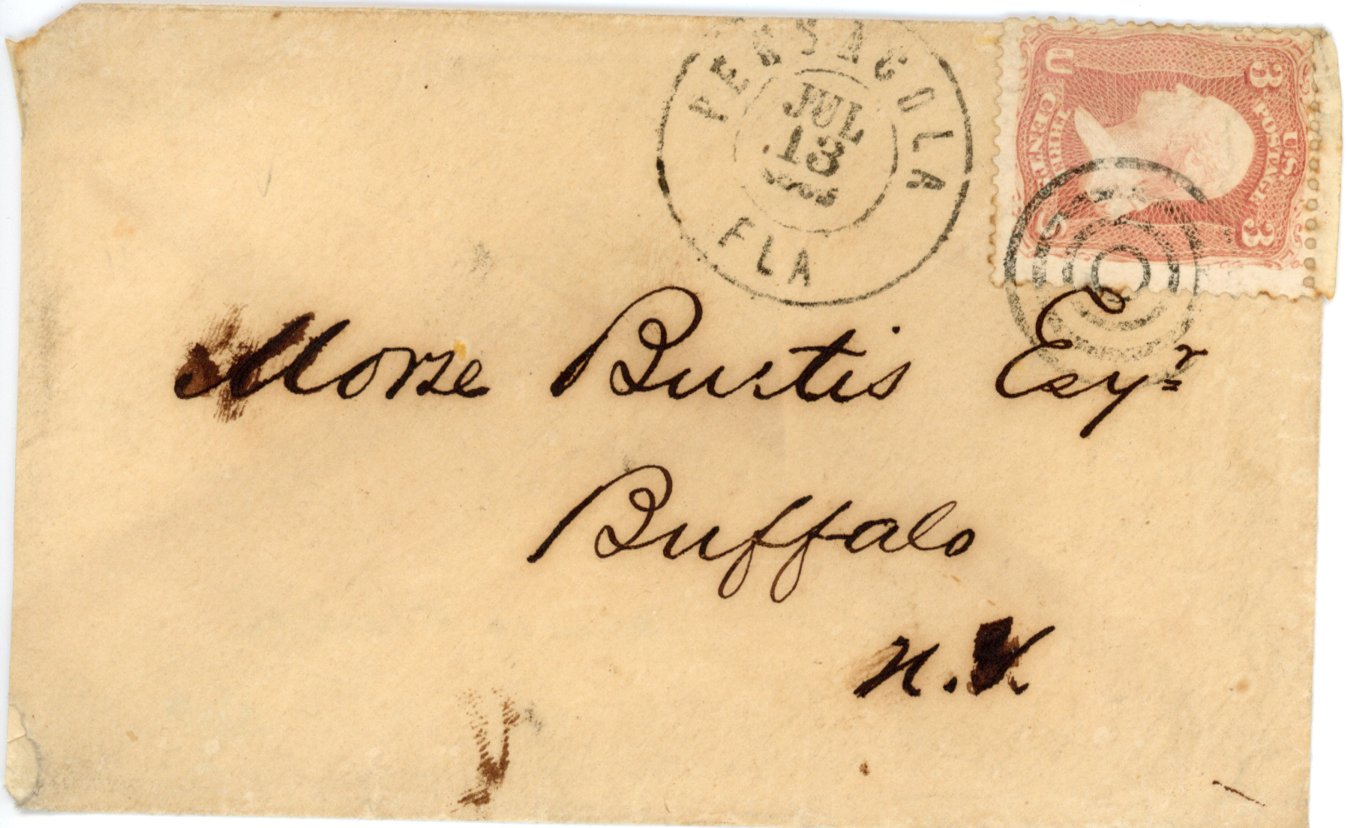 PENSACOLA
JUL
13
FLA
U S
3 POSTAGE 3
THREE CENTS
Morse Burtis Esqr
Buffalo
N.Y.